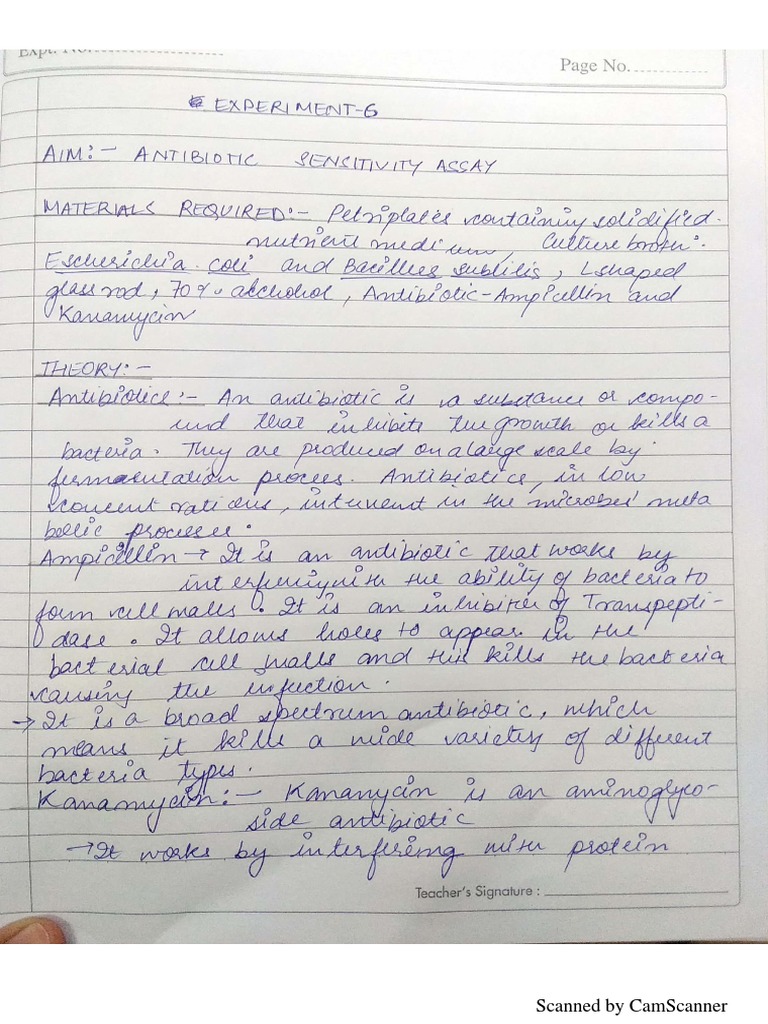 Expt. No.
Page No.
EXPERIMENT-6
AIM:- ANTIBIOTIC SENSITIVITY ASSAY
MATERIALS REQUIRED:- Petriplates containing solidified
nutrient medium, Culture broth:
Escherichia coli and Bacillus subtilis, L shaped
glass rod, 70% alchohol, Antibiotic-Ampicillin and
Kanamycin
THEORY:-
Antibiotics:- An antibiotic is a substance or compo-
und that inhibits the growth or kills a
bacteria. They are produced on a large scale by
fermentation process. Antibiotics, in low
concentrations, intervent in the microbes' meta
bolic processes.
Ampicillin → It is an antibiotic that works by
interfering with the ability of bacteria to
form cell walls. It is an inhibiter of Transpepti-
dase. It allows holes to appear in the
bacterial cell walls and this kills the bacteria
causing the infection.
→ It is a broad spectrum antibiotic, which
means it kills a wide variety of different
bacteria types.
Kanamycin:- Kanamycin is an aminoglyco-
side antibiotic
→ It works by interfering with protein
Teacher's Signature :
Scanned by CamScanner